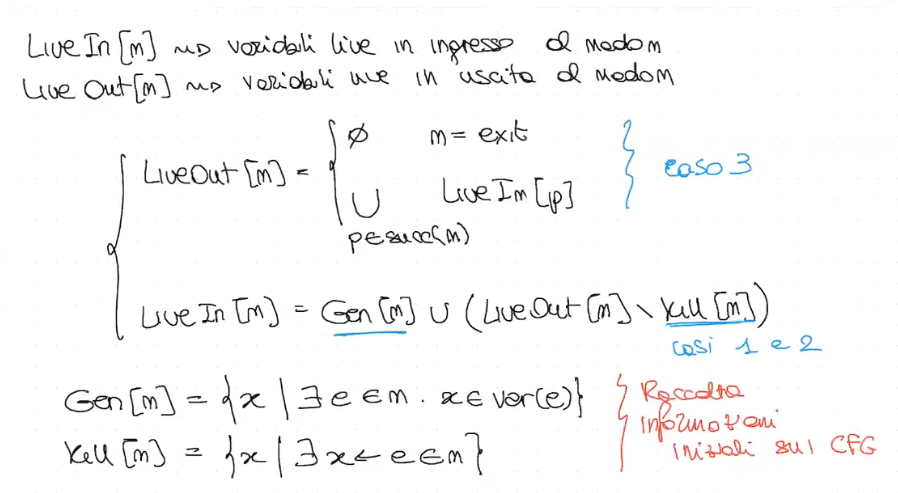 LiveIn[n] ⇝ variabili live in ingresso al nodo n
LiveOut[n] ⇝ variabili live in uscita al nodo n
LiveOut[n] = { ∅ n = exit
⋃ LiveIn[p]
p∈succ(n)
caso 3
LiveIn[n] = Gen[n] ∪ (LiveOut[n] \ Kill[n])
casi 1 e 2
Gen[n] = {x | ∃ e ∈ n . x ∈ var(e)}
Kill[n] = {x | ∃ x ← e ∈ n}
Raccolta
informazioni
iniziali sul CFG